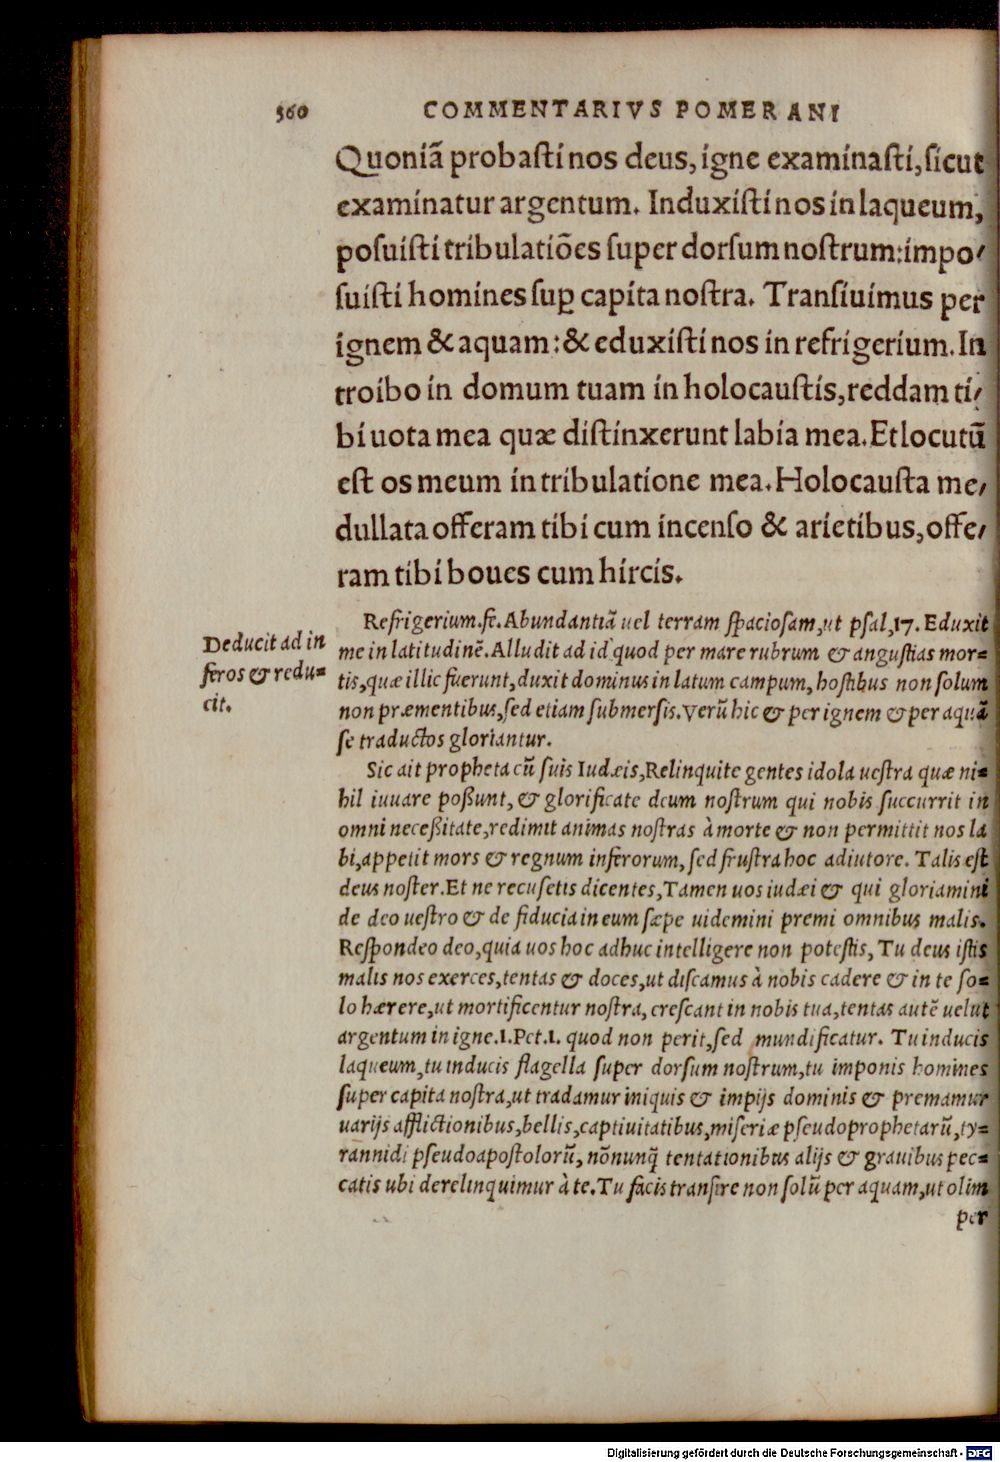 360 COMMENTARIVS POMERANI
Quoniā probaſti nos deus, igne examinaſti, ſicut
examinatur argentum. Induxiſti nos in laqueum,
poſuiſti tribulatiōes ſuper dorſum noſtrum: impo/
ſuiſti homines ſuꝑ capita noſtra. Tranſiuimus per
ignem & aquam: & eduxiſti nos in refrigerium. In
troibo in domum tuam in holocauſtis, reddam ti/
bi uota mea quæ diſtinxerunt labia mea. Et locutū
eſt os meum in tribulatione mea. Holocauſta me/
dullata offeram tibi cum incenſo & arietibus, offe/
ram tibi boues cum hircis.
Deducit ad in
feros & redu=
cit.
Refrigerium. ſc. Abundantiā uel terram ſpacioſam, ut pſal, 17. Eduxit
me in latitudinē. Alludit ad id quod per mare rubrum & anguſtias mor=
tis, quæ illic fuerunt, duxit dominus in latum campum, hoſtibus non ſolum
non præmentibus, ſed etiam ſubmerſis. Verū hic & per ignem & per aquā
ſe traductos gloriantur.
Sic ait propheta cū ſuis Iudæis, Relinquite gentes idola ueſtra quæ ni=
hil iuuare poßunt, & glorificate deum noſtrum qui nobis ſuccurrit in
omni neceßitate, redimit animas noſtras à morte & non permittit nos la
bi, appetit mors & regnum inferorum, ſed fruſtra hoc adiutore. Talis eſt
deus noſter. Et ne recuſetis dicentes, Tamen uos iudæi & qui gloriamini
de deo ueſtro & de fiducia in eum ſæpe uidemini premi omnibus malis.
Reſpondeo deo, quia uos hoc adhuc intelligere non poteſtis, Tu deus iſtis
malis nos exerces, tentas & doces, ut diſcamus à nobis cadere & in te ſo=
lo hærere, ut mortificentur noſtra, creſcant in nobis tua, tentas autē uelut
argentum in igne. 1. Pet. 1. quod non perit, ſed mundificatur. Tu inducis
laqueum, tu inducis flagella ſuper dorſum noſtrum, tu imponis homines
ſuper capita noſtra, ut tradamur iniquis & impijs dominis & premamur
uarijs afflictionibus, bellis, captiuitatibus, miſeriæ pſeudoprophetarū, ty=
rannidi pſeudoapoſtolorū, nōnunq̃ tentationibus alijs & grauibus pec=
catis ubi derelinquimur à te. Tu facis tranſire non ſolū per aquam, ut olim
per
Digitalisierung gefördert durch die Deutsche Forschungsgemeinschaft - DFG